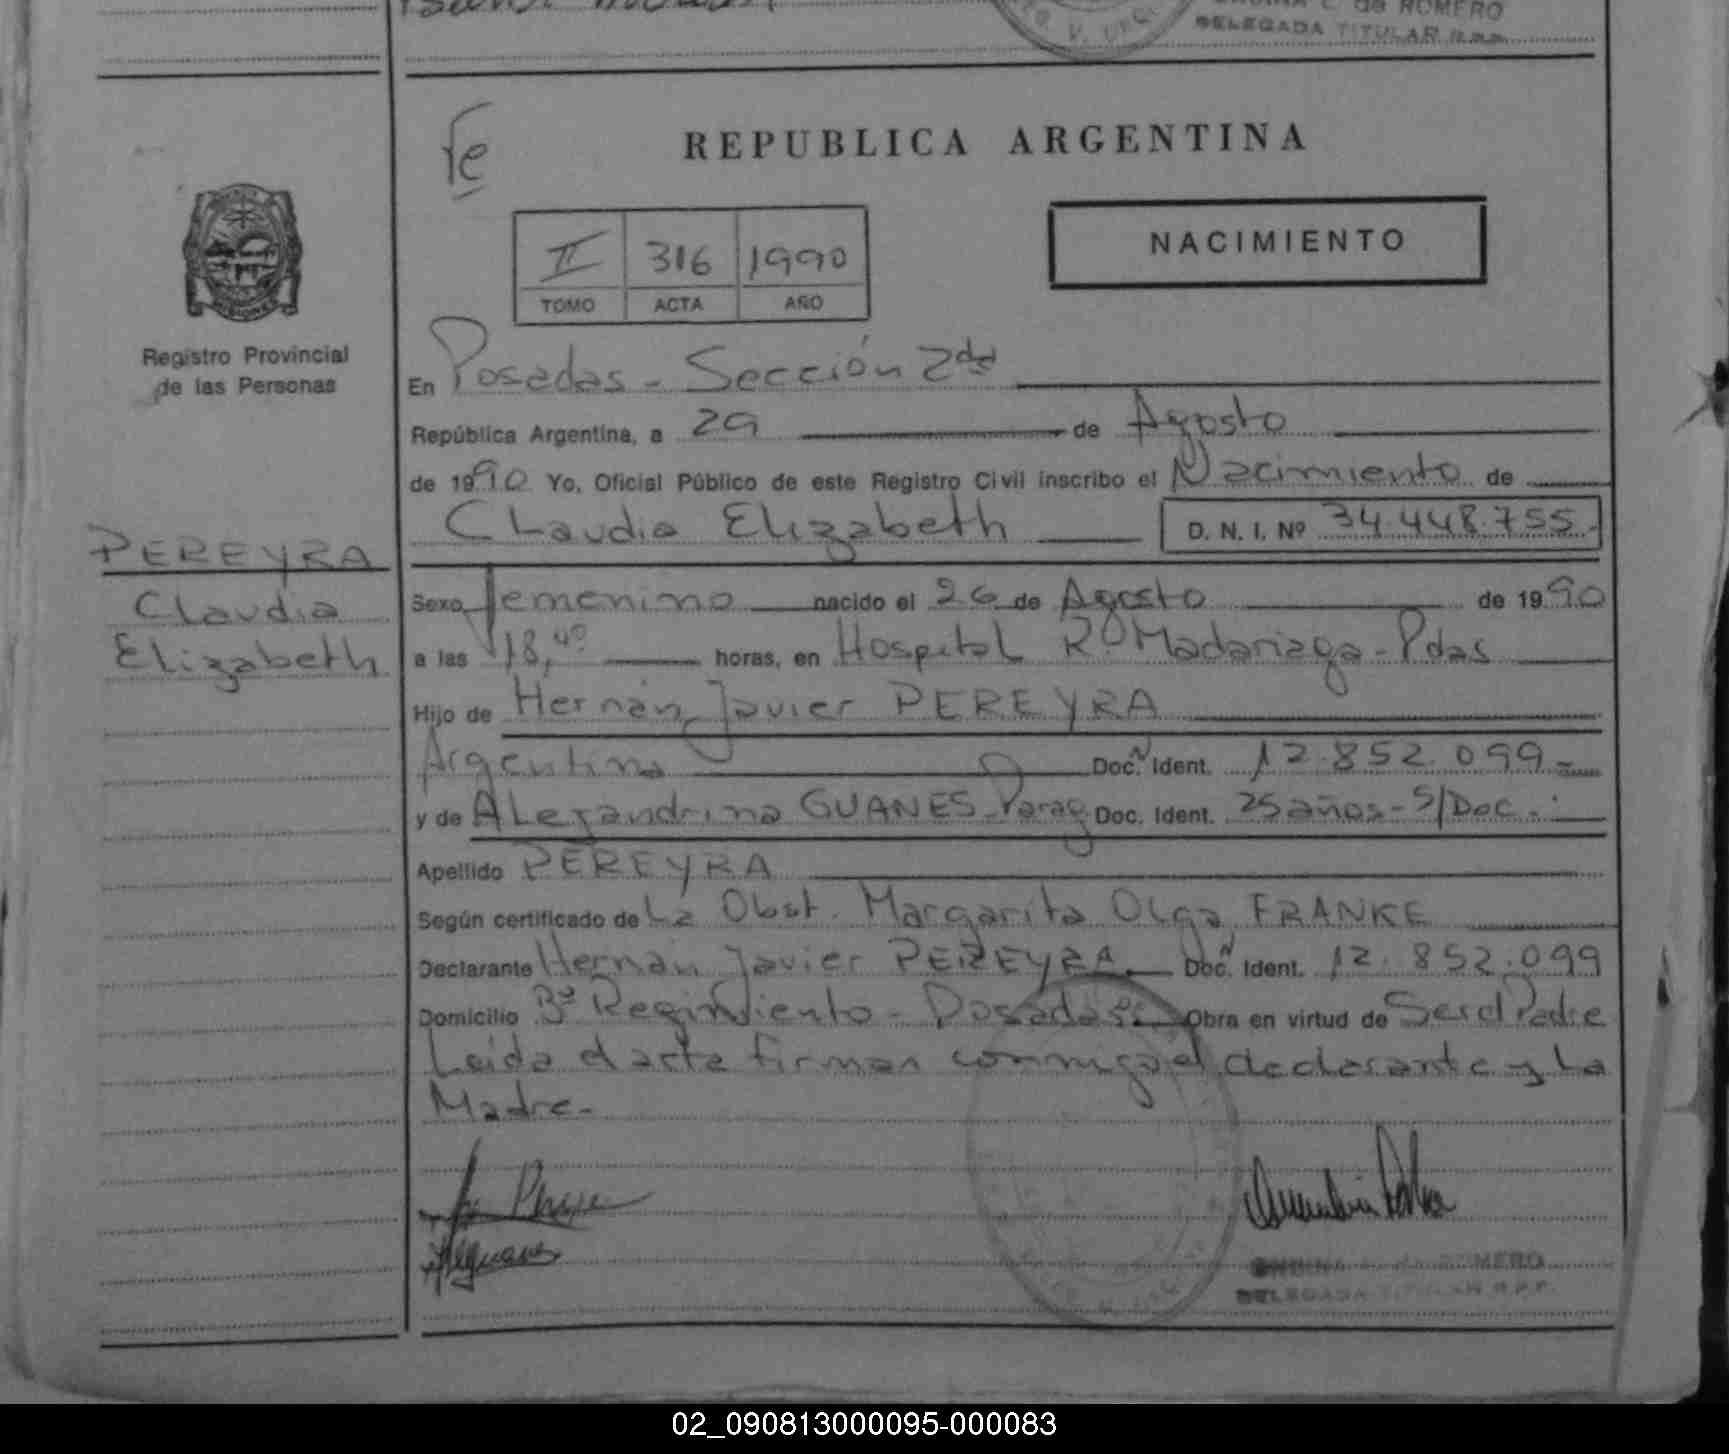 DELEGADA TITULAR R.P.P.
Fe
REPUBLICA ARGENTINA
NACIMIENTO
II 316 1990
TOMO ACTA AÑO
Registro Provincial
de las Personas
En Posadas - Sección 2da
República Argentina, a 29 de Agosto
de 1990 Yo, Oficial Público de este Registro Civil inscribo el Nacimiento de
Claudia Elizabeth D. N. I. Nº 34.448.755.-
PEREYRA
Claudia
Elizabeth
Sexo femenino nacido el 26 de Agosto de 1990
a las 18,40 horas, en Hospital Rº Madariaga - Pdas
Hijo de Hernán Javier PEREYRA
Argentino Doc.N Ident. 12.852.099.-
y de Alejandrina GUANES - Parag Doc. Ident. 25 años - S/Doc.
Apellido PEREYRA
Según certificado de La Obst. Margarita Olga FRANKE
Declarante Hernán Javier PEREYRA Doc.N Ident. 12.852.099
Domicilio Bº Regimiento - Posadas Obra en virtud de Ser el Padre
Leída el acta firman conmigo el declarante y la
Madre.-
DELEGADA TITULAR R.P.P.
02_090813000095-000083